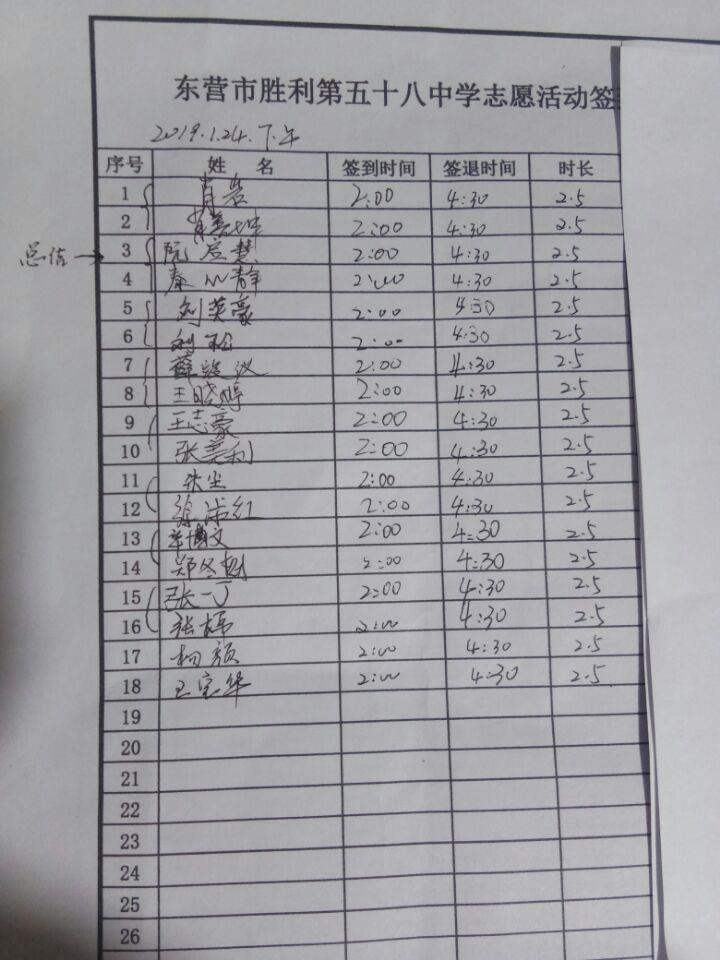 东营市胜利第五十八中学志愿活动签
2019.1.24.下午
序号 姓 名 签到时间 签退时间 时长
1 肖岩 2:00 4:30 2.5
2 肖 坤 2:00 4:30 2.5
总结→ 3 阮 慧 2:00 4:30 2.5
4 秦 静 2:00 4:30 2.5
5 刘英豪 2:00 4:30 2.5
6 刘松 2:00 4:30 2.5
7 薛 议 2:00 4:30 2.5
8 王晓婷 2:00 4:30 2.5
9 王志豪 2:00 4:30 2.5
10 张美利 2:00 4:30 2.5
11 2:00 4:30 2.5
12 红 2:00 4:30 2.5
13 博文 2:00 4:30 2.5
14 郑冬梅 2:00 4:30 2.5
15 张一 2:00 4:30 2.5
16 张 2:00 4:30 2.5
17 杨颜 2:00 4:30 2.5
18 王宝华 2:00 4:30 2.5
19
20
21
22
23
24
25
26